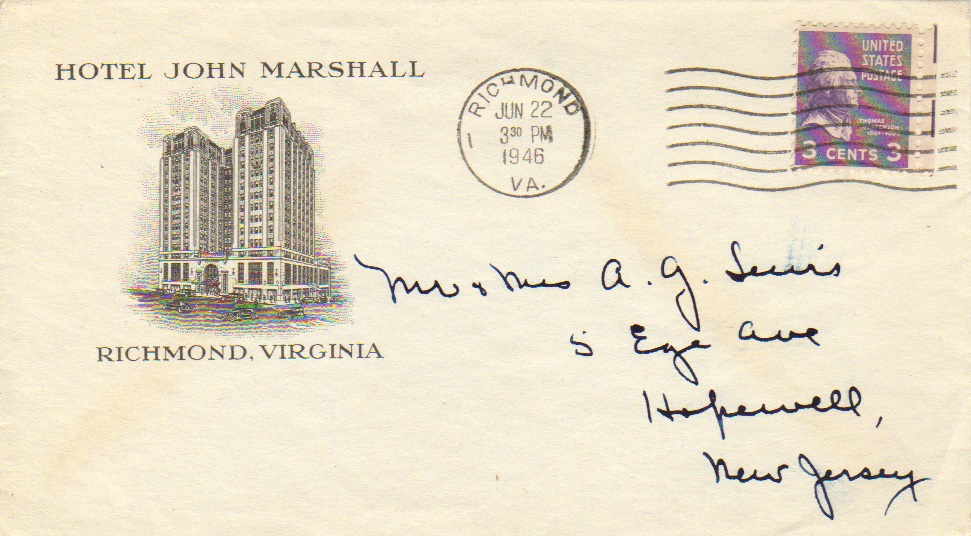 HOTEL JOHN MARSHALL
RICHMOND, VIRGINIA
RICHMOND
JUN 22
3 30 PM
1946
VA.
UNITED
STATES
POSTAGE
THOMAS
3 CENTS 3
Mr & Mrs A. G. Lewis
5 Ege Ave
Hopewell,
New Jersey